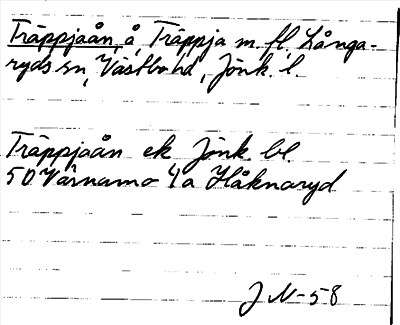 Träppjaån, å, Träppja m. fl. Långa-
ryds sn, Västbo hd, Jönk. l.
Träppjaån ek Jönk. bl.
50 Värnamo 4a Håknaryd
J N-58